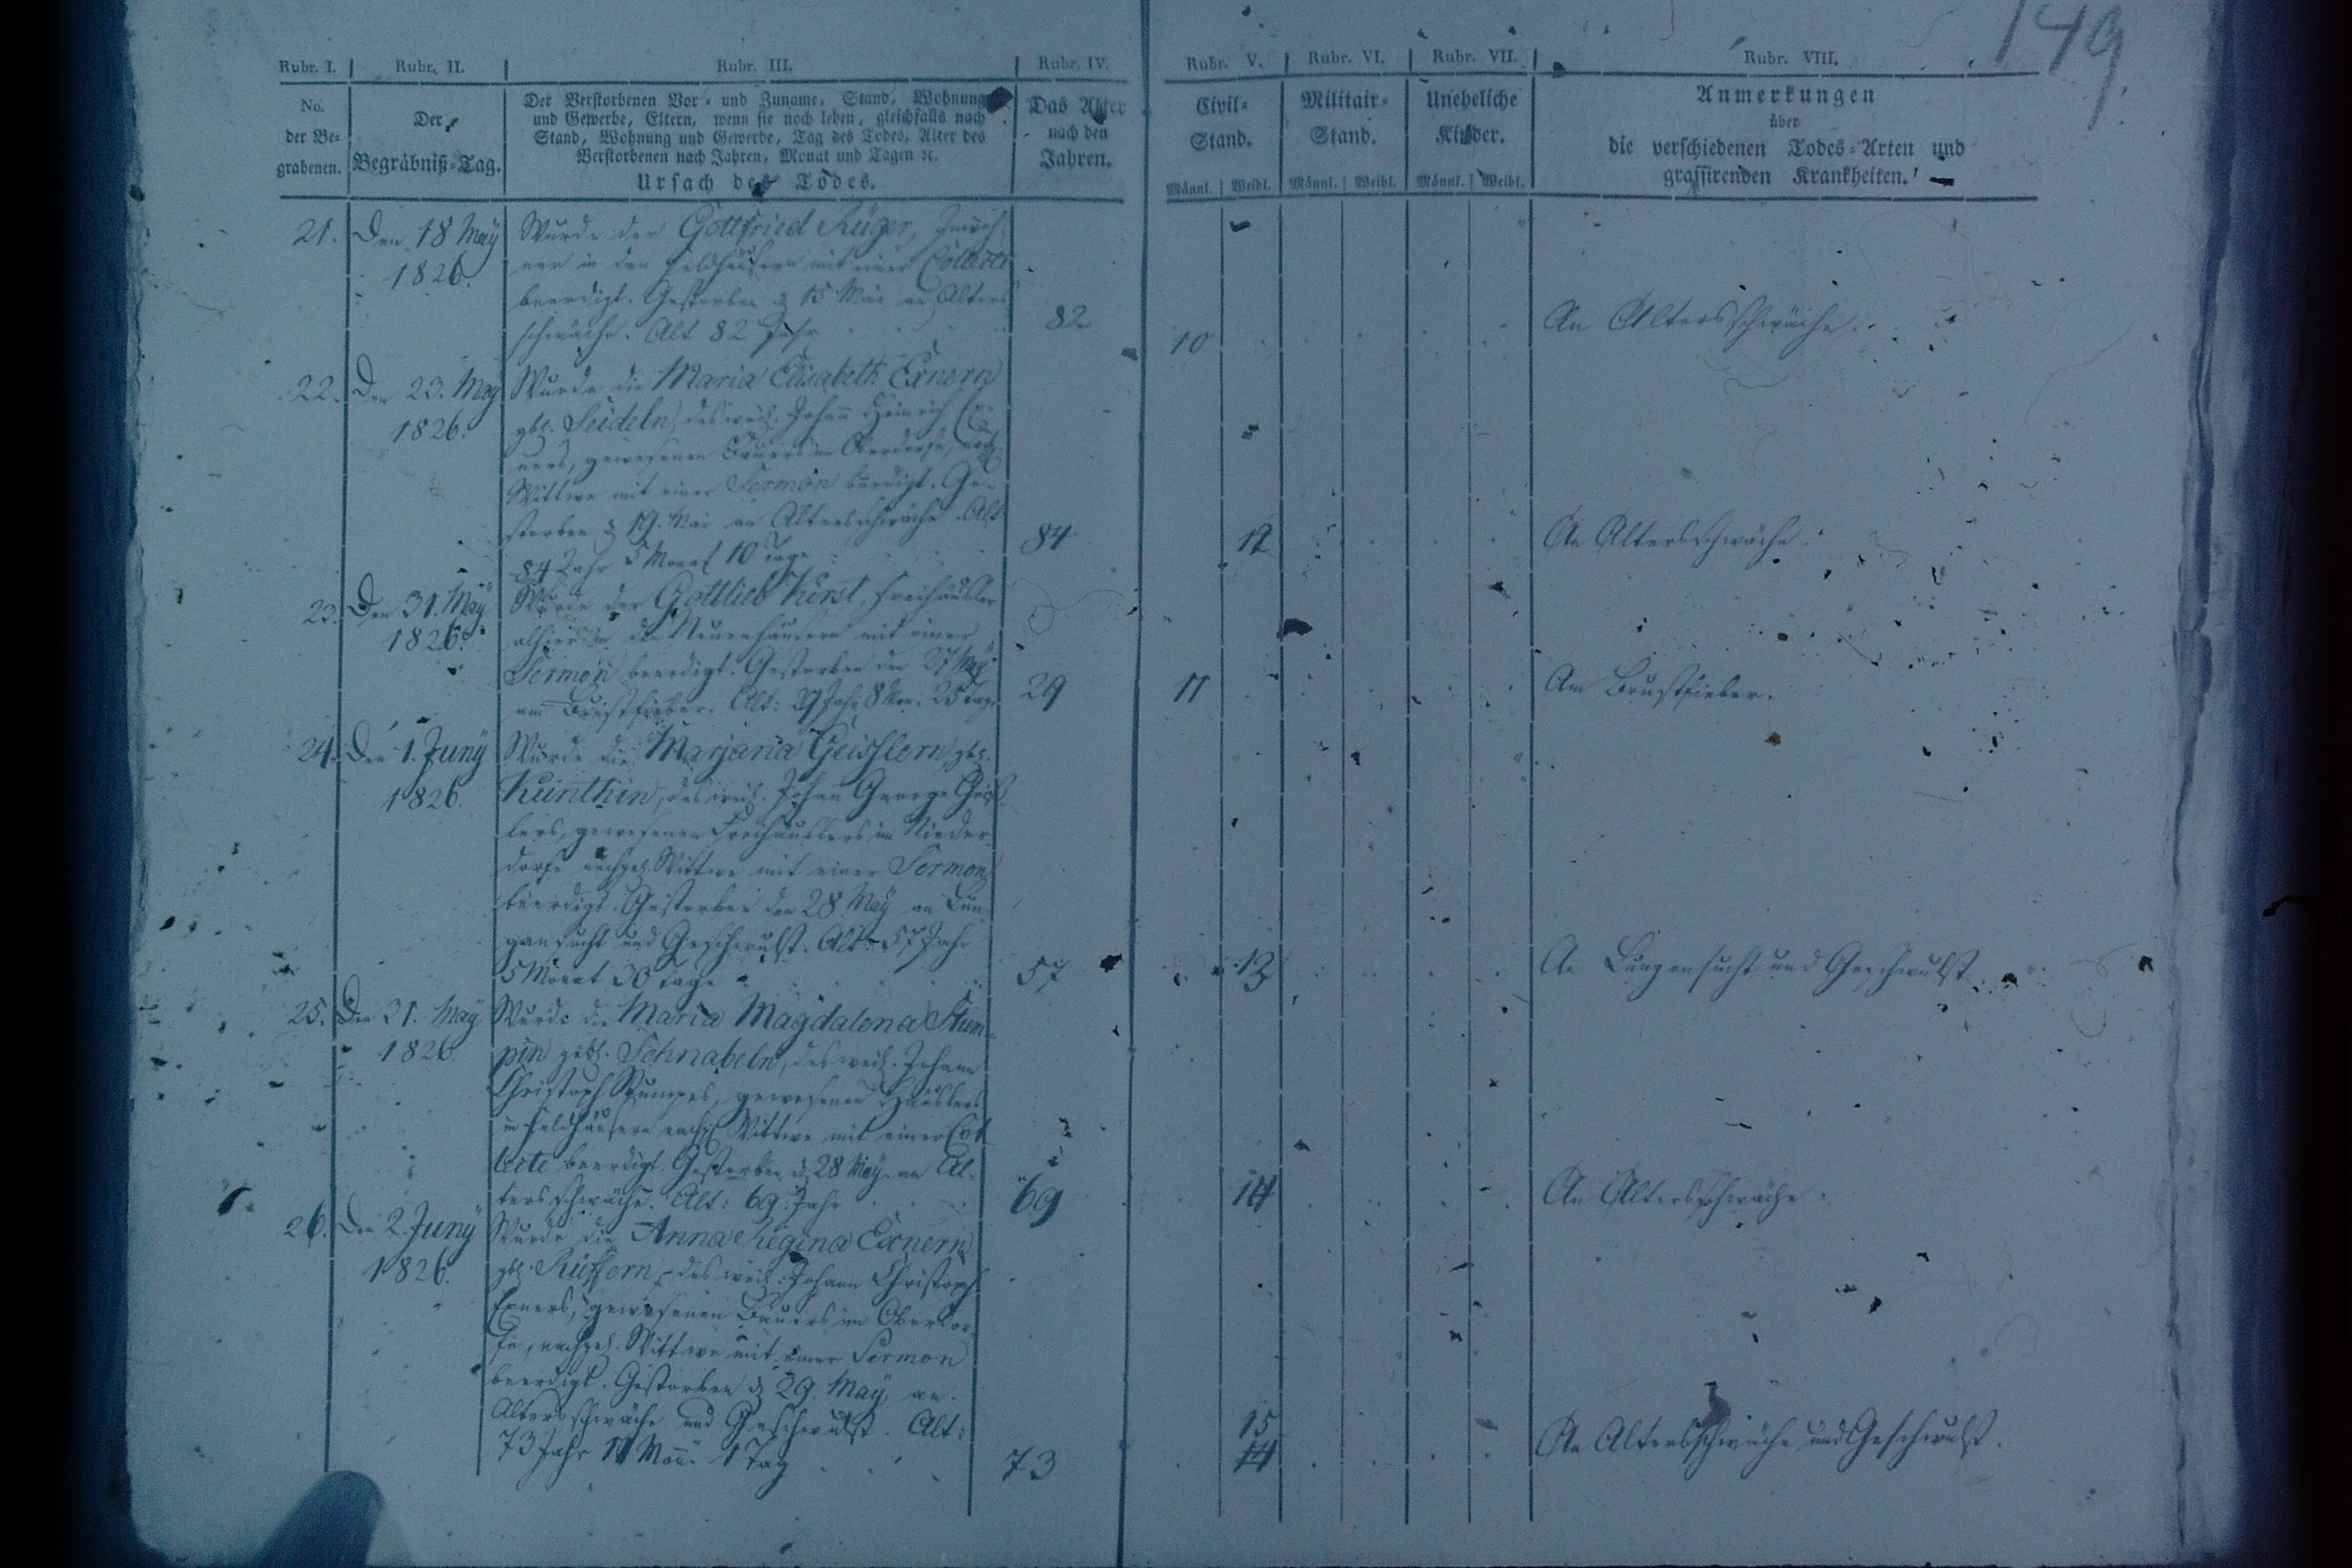 149.
Rubr. I. Rubr. II. Rubr. III. Rubr. IV. Rubr. V. Rubr. VI. Rubr. VII. Rubr. VIII.
No.
der Be-
grabenen.
Der
Begräbniß-Tag.
Der Verstorbenen Vor- und Zuname, Stand, Wohnung
und Gewerbe, Eltern, wenn sie noch leben, gleichfalls nach
Stand, Wohnung und Gewerbe, Tag des Todes, Alter des
Verstorbenen nach Jahren, Monat und Tagen ꝛc.
Ursach des Todes.
Das Alter
nach den
Jahren.
Civil-
Stand.
Männl. Weibl.
Militair-
Stand.
Männl. Weibl.
Uneheliche
Kinder.
Männl. Weibl.
Anmerkungen
über
die verschiedenen Todes-Arten und
grassirenden Krankheiten.
21.
Den 18 May
1826.
Wurde der Gottfried Rüger, Inwoh-
ner in den Feldhäusern mit einer Collecte
beerdigt. Gestorben d 15 Mai an Alters
schwäche. Alt 82 Jahr
82
10
An Altersschwäche.
22.
Den 23. May
1826.
Wurde die Maria Elisabeth Exnern
gb. Seideln, des weil. Johann Heinrich Ex-
ners, gewesenen Bauers im Oberdorfe,
Wittwe mit einer Sermon beerdigt. Ge-
storben d 19. Mai an Altersschwäche. Alt
84 Jahr 5 Monat 10 Tage
84
12
An Altersschwäche.
23.
Den 31. May
1826.
Wurde der Gottlieb Kerst, Freihäusler
alhier in den Neuenhäusern mit einer
Sermon beerdigt. Gestorben den 27 May
am Brustfieber. Alt: 29 Jahr 8 Mon. 25 Tage
29
11
Am Brustfieber.
24.
Den 1. Juny
1826.
Wurde die Marjana Geisslern, gb.
Künthin, des weil. Johan George Geiß-
lers, gewesenen Freihäuslers im Nieder-
dorfe nachgel. Wittwe mit einer Sermon
beerdigt. Gestorben den 28 May an Lun-
gensucht und Geschwulst. Alt: 57 Jahr
5 Monat 30 Tage
57
13
An Lungensucht und Geschwulst
25.
Den 31. May
1826.
Wurde die Maria Magdalena Stum-
pin geb. Schnabeln, des weil. Johann
Christoph Stumpes, gewesenen Häuslers
in Feldhäusern nachgel Wittwe mit einer Col-
lecte beerdigt. Gestorben d 28 May an Al-
tersschwäche. Alt: 69. Jahr
69
14
An Altersschwäche.
26.
Den 2. Juny
1826.
Wurde die Anna Regina Exnern
gb. Rüffern, des weil. Johann Christoph
Exners, gewesenen Bauers im Oberdor-
fe, nachgel. Wittwe mit einer Sermon
beerdigt. Gestorben d 29. May an
Altersschwäche und Geschwulst. Alt:
73 Jahr 11 Mon. 1 Tag
73
15
14
An Altersschwäche und Geschwulst.